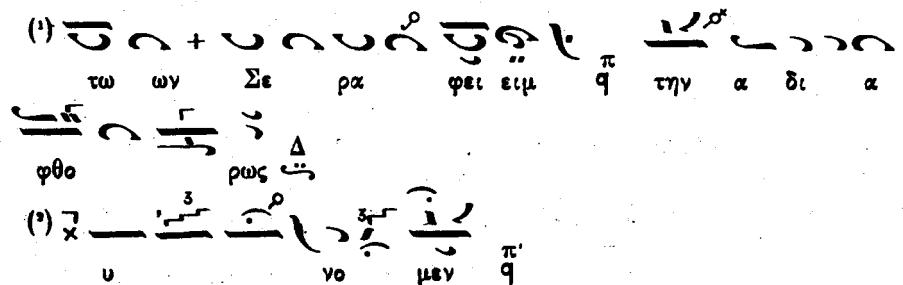 (1) τω ων Σε ρα φει ειμ π q την α δι α
φθο ρως Δ
(2) υ 3 νο 3 μεν π' q